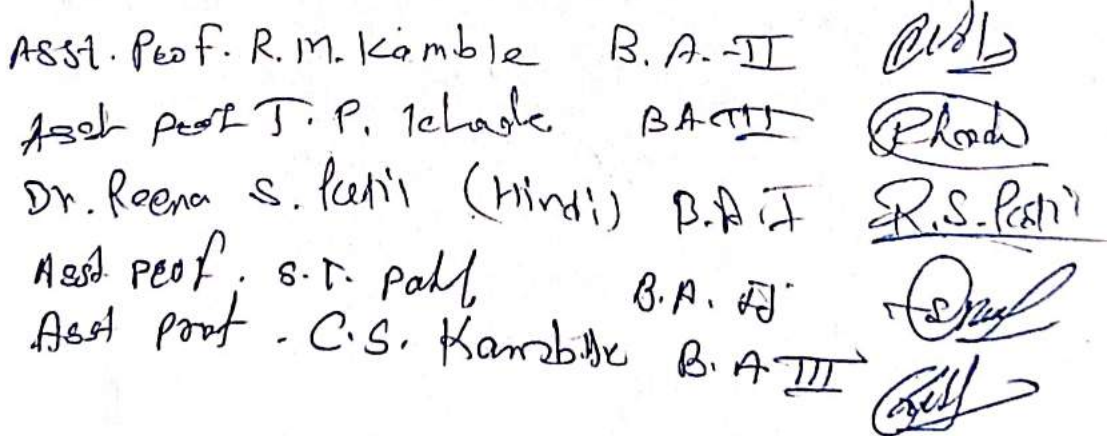 Asst. Prof. R. M. Kamble B. A.-II
Asst prof T. P. BA III
Dr. Reena S. Patil (Hindi) B.A.I R.S.Patil
Asst prof. S.T. Patil B.A. II
Asst Prof. C.S. Kamble B. A III